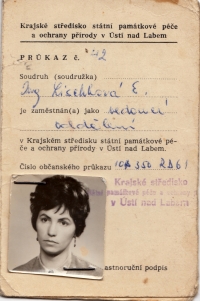 Krajské středisko státní památkové péče
a ochrany přírody v Ústí nad Labem
PRŮKAZ č. 42
Soudruh (soudružka)
Ing Hischková E.
je zaměstnán(a) jako vedoucí
oddělení
v Krajském středisku státní památkové péče
a ochrany přírody v Ústí nad Labem.
Číslo občanského průkazu
Krajské středisko
státní památkové péče a ochrany přírody
v Ústí nad Labem
lastnoruční podpis